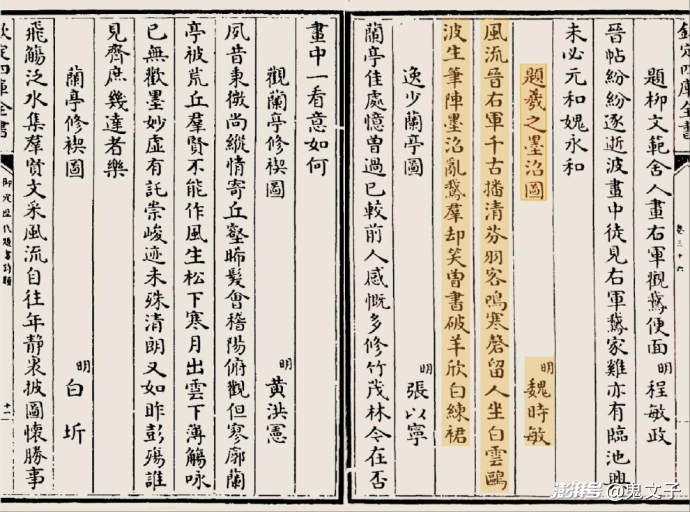 欽定四庫全書
卷三十六
題柳文範舍人畫右軍觀鵞便面 明 程敏政
晉帖紛紛逐逝波畫中徒見右軍鵞家雞亦有臨池興
未必元和媿永和
題羲之墨沼圖 明 魏時敏
風流晉右軍千古播清芬羽客鳴寒磬留人坐白雲鷗
波生筆陣墨沼亂鵞羣却笑曽書破羊欣白練裙
逸少蘭亭圖 明 張以寧
蘭亭佳處憶曽過已較前人感慨多修竹茂林今在否
畫中一看意如何
觀蘭亭修禊圖 明 黄洪憲
夙昔秉微尚縱情寄丘壑晞髮會稽陽俯觀但寥廓蘭
亭被荒丘羣賢不能作風生松下寒月出雲下薄觴咏
已無歡墨妙虛有託崇峻迹未殊清朗又如昨彭殤誰
見齊庶幾達者樂
蘭亭修禊圖 明 白圻
飛觴泛水集羣賢文采風流自往年静裏披圖懷勝事
欽定四庫全書
御定歴代題畫詩類
十一
澎湃号 @鬼文子